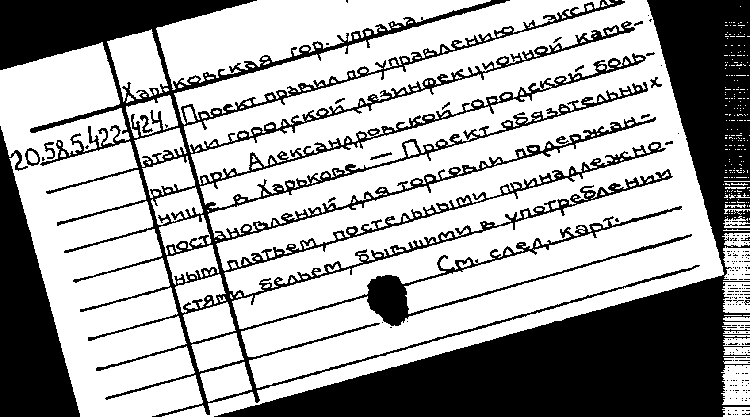 Харьковская гор. управа.
20.58.5.422-424. Проект правил по управлению и экспло-
атации городской дезинфекционной каме-
ры при Александровской городской боль-
нице в Харькове. — Проект обязательных
постановлений для торговли подержан-
ным платьем, постельными принадлежно-
стями, бельем, бывшими в употреблении
См. след. карт.